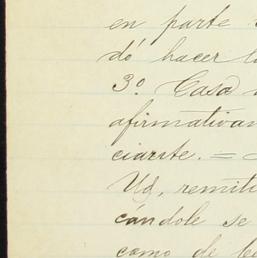 en parte
dó hacer
3º Casa
afirmativa
ciarse. =
Ud, remiti
cándole se
como de